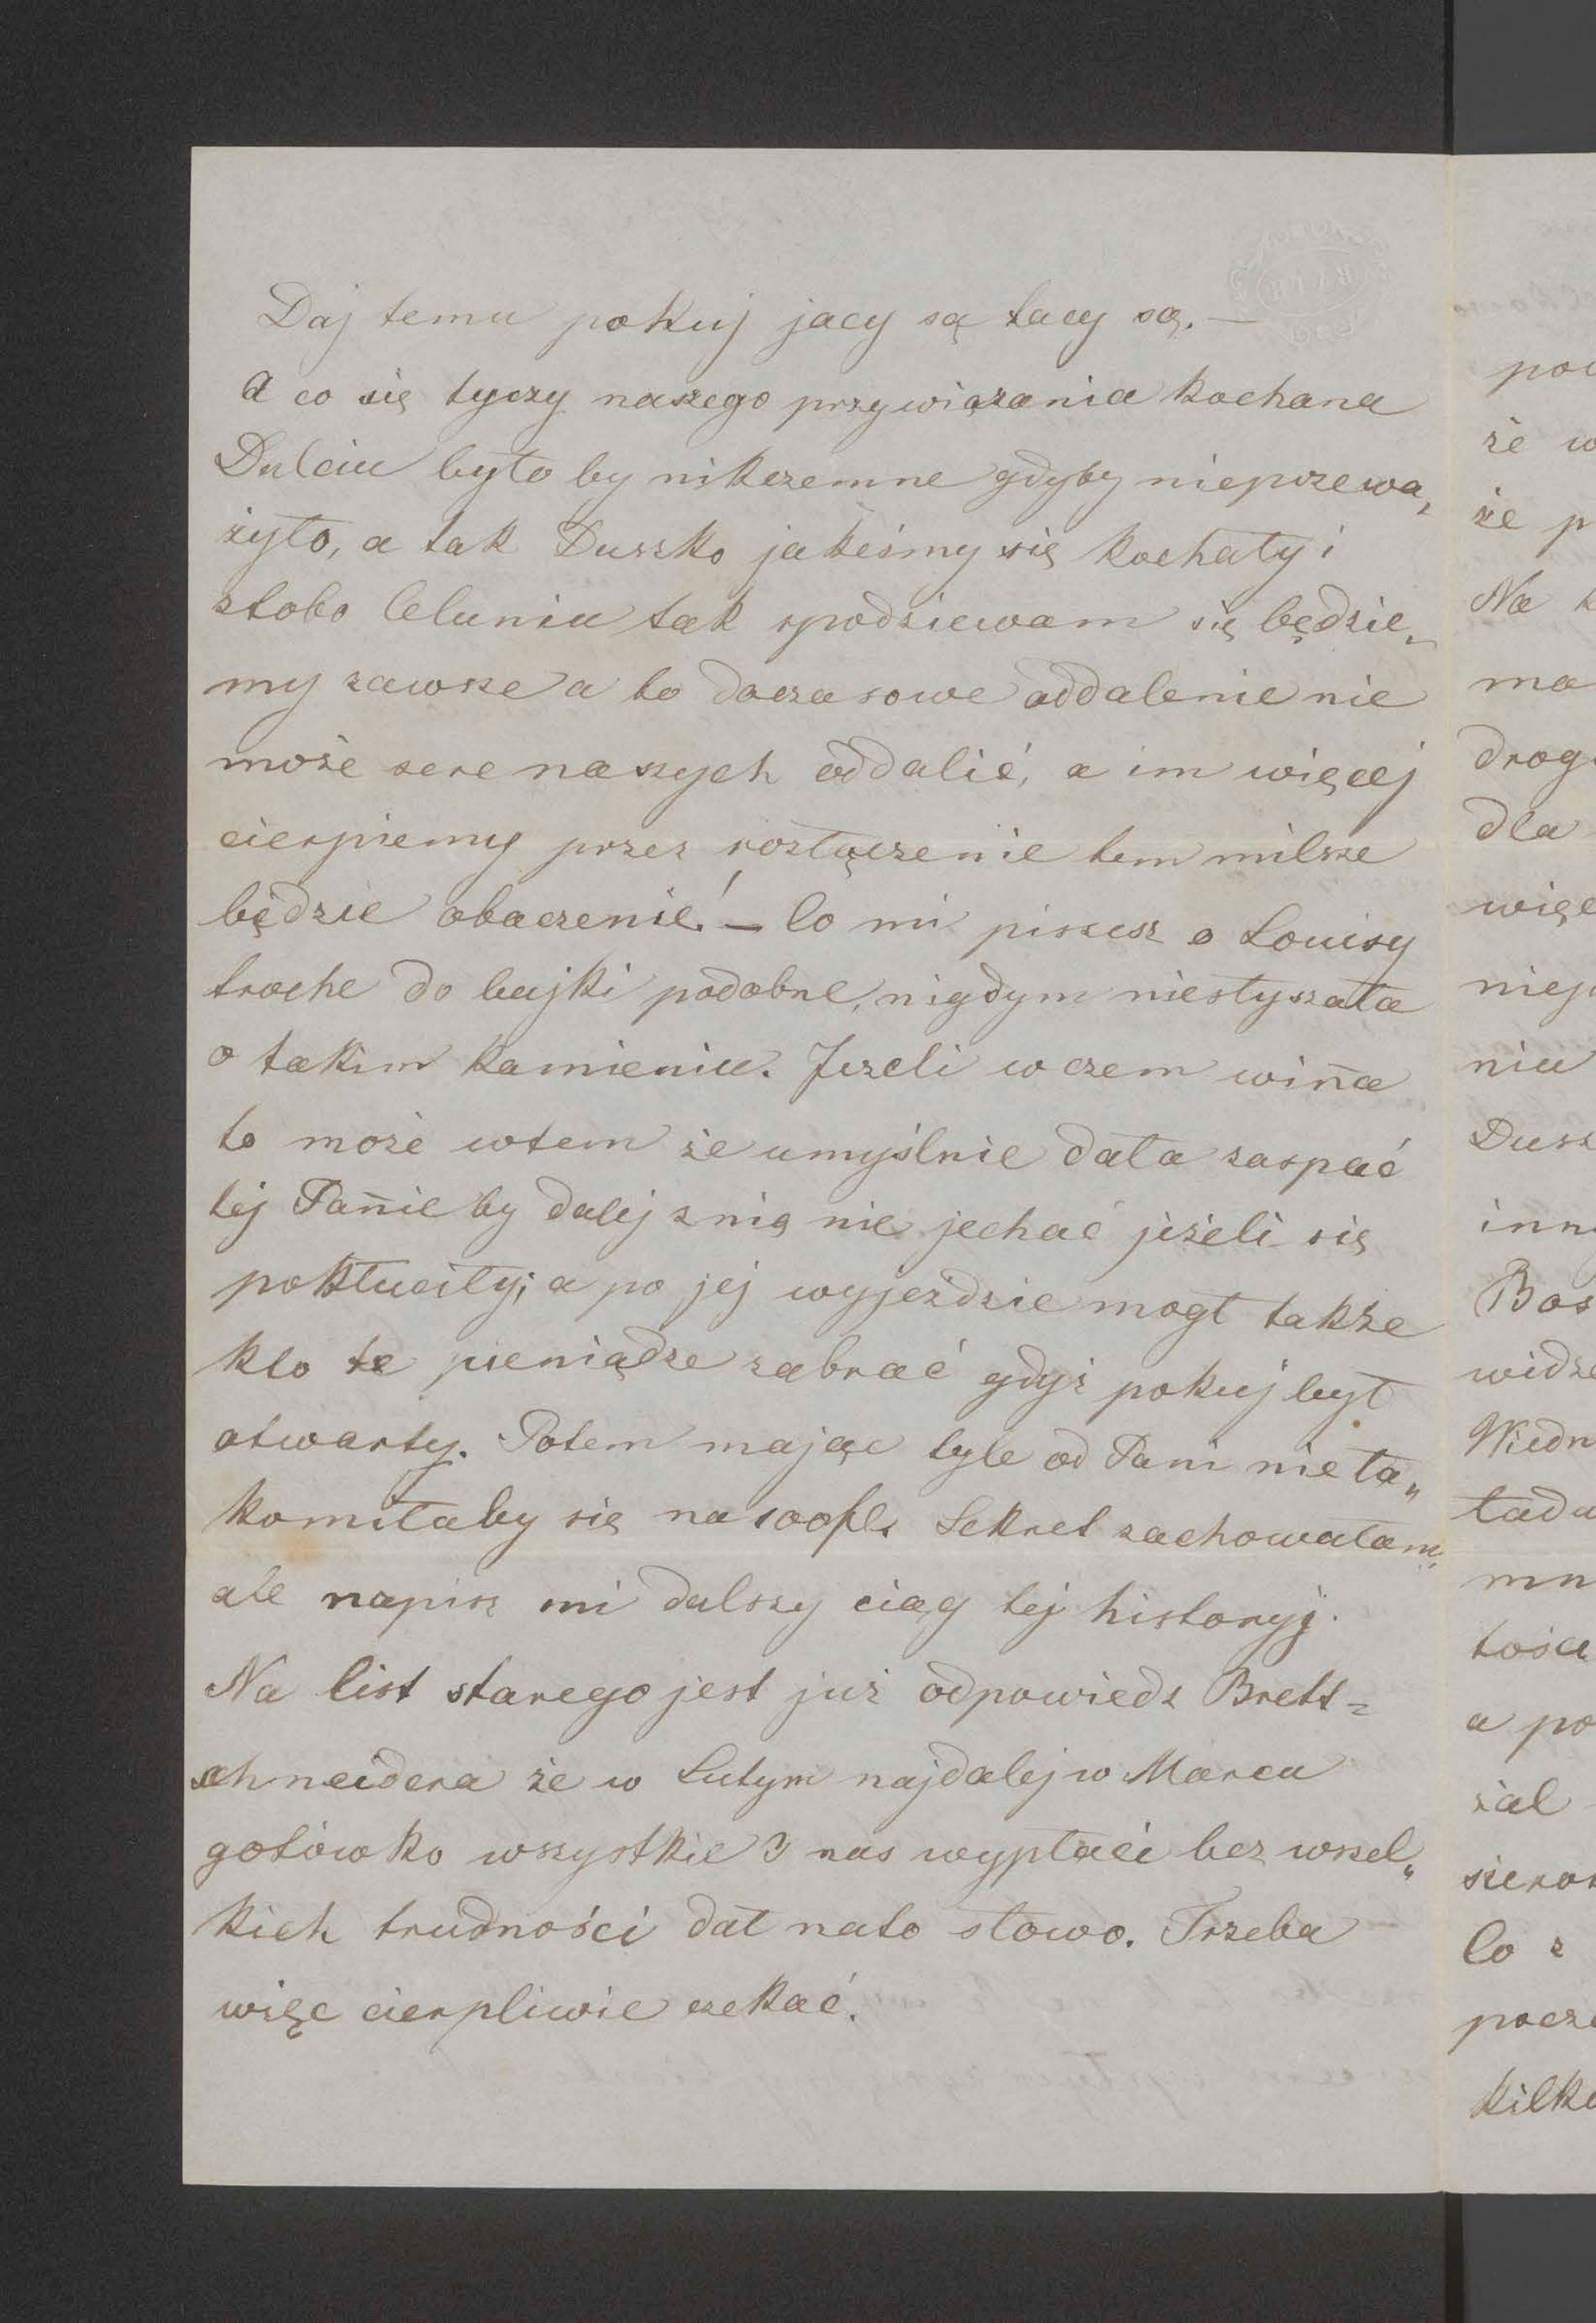 Daj temu pokuj jacy są tacy są. —
A co się tyczy naszego przywiązania kochana
Dulciu było by nikczemne gdyby nieprzewa„
żyło, a tak Duszko jakeśmy się kochały i
stobo Celuniu tak spodziewam się będzie„
my zawsze a to doczasowe oddalenie nie
może serc naszych oddalić, a im więcej
cierpiemy przez rozłączenie tem milsze
będzie obaczenie! — Co mi piszesz o Louisy
troche do bajki podobne, nigdym niesłyszała
o takim kamieniu. Jeżeli w czem wina
to może wtem że umyślnie dała zaspać
tej Panie by dalej znią nie jechać jeżeli się
pokłuciły; a po jej wyjeździe mogł także
kto te pieniądze zabrać gdyż pokuj był
otwarty. Potem mając tyle od Pani nie ła„
komiłaby się na 100fl. Sekret zachowałam,
ale napisz mi dalszy ciąg tej historyj.
Na list starego jest już odpowiedz Brett=
schneidera że w Lutym najdalej w Marcu
gotówko wszystkie 3 nas wypłaci bez wszel„
kich trudności dał nato słowo. Trzeba
więc cierpliwie czekać.
że w
że p
Na k
ma
drog
dla
więc
niep
niu
Dusz
inn
Bos
widze
Wiedn
ładu
mn
tośa
a po
żal
Co z
pocz
kilk